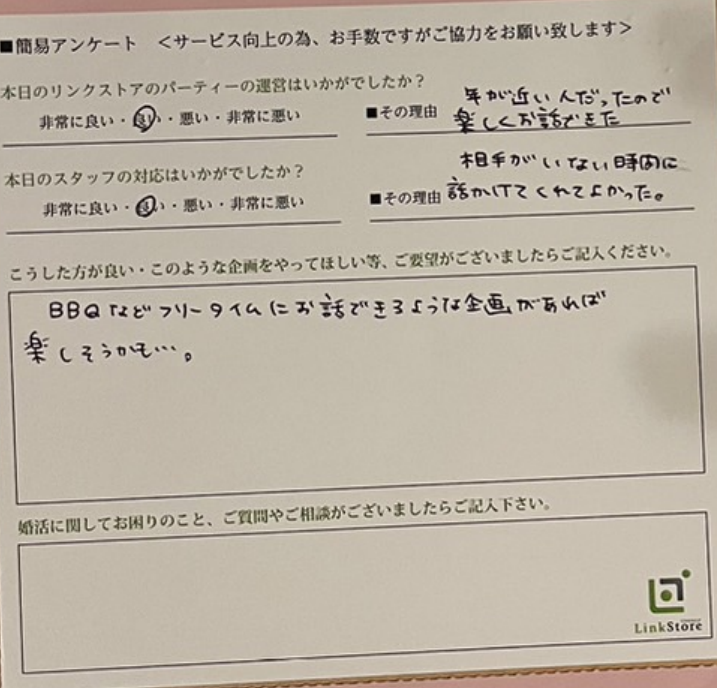 ■簡易アンケート　＜サービス向上の為、お手数ですがご協力をお願い致します＞
本日のリンクストアのパーティーの運営はいかがでしたか？
非常に良い・良い・悪い・非常に悪い
■その理由
年が近い人だったので
楽しくお話できた
本日のスタッフの対応はいかがでしたか？
非常に良い・良い・悪い・非常に悪い
■その理由
相手がいない時間に
話かけてくれてよかった。
こうした方が良い・このような企画をやってほしい等、ご要望がございましたらご記入ください。
BBQなどフリータイムにお話できるような企画があれば
楽しそうかも…。
婚活に関してお困りのこと、ご質問やご相談がございましたらご記入下さい。
LinkStore